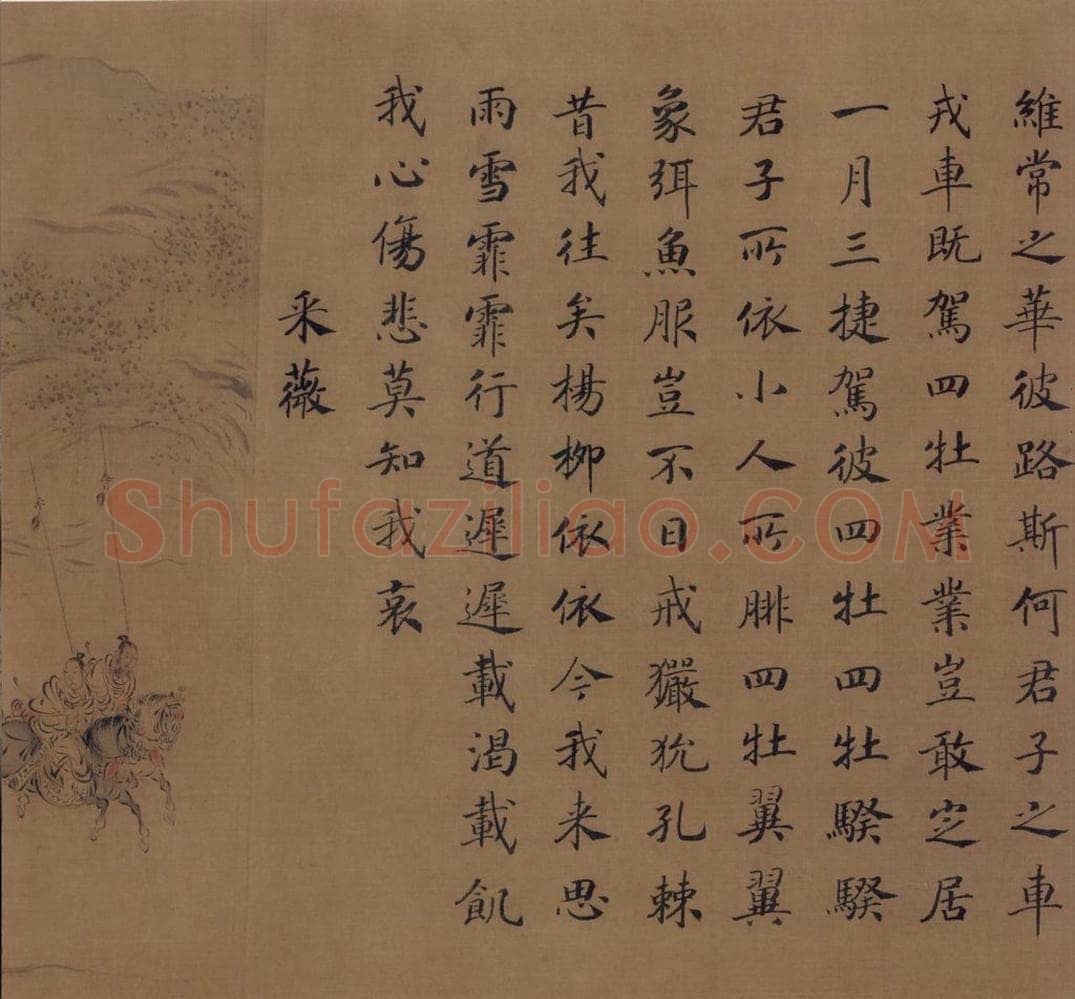 維常之華彼路斯何君子之車
戎車既駕四牡業業豈敢定居
一月三捷駕彼四牡四牡騤騤
君子所依小人所腓四牡翼翼
象弭魚服豈不日戒玁狁孔棘
昔我往矣楊柳依依今我来思
雨雪霏霏行道遲遲載渴載飢
我心傷悲莫知我哀
采薇
Shufaziliao.COM